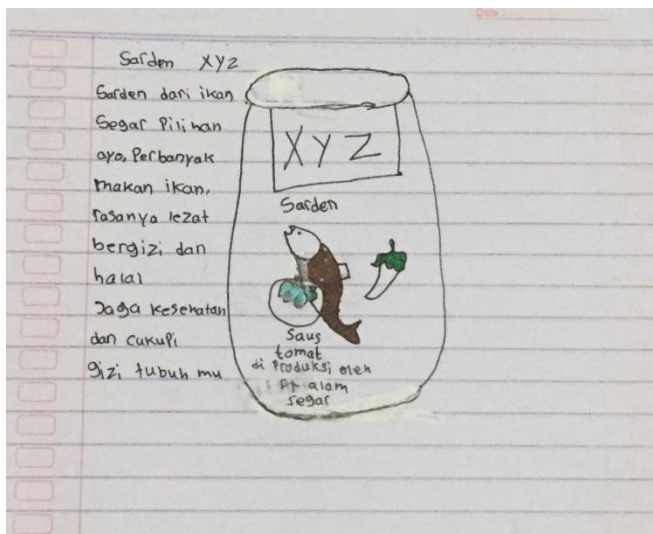 Date
Sarden XYZ
Sarden dari ikan
Segar Pilihan
ayo, Perbanyak
makan ikan,
rasanya lezat
bergizi dan
halal
Jaga kesehatan
dan cukupi
gizi tubuh mu
XYZ
Sarden
Saus
tomat
di Produksi oleh
Pt alam
segar